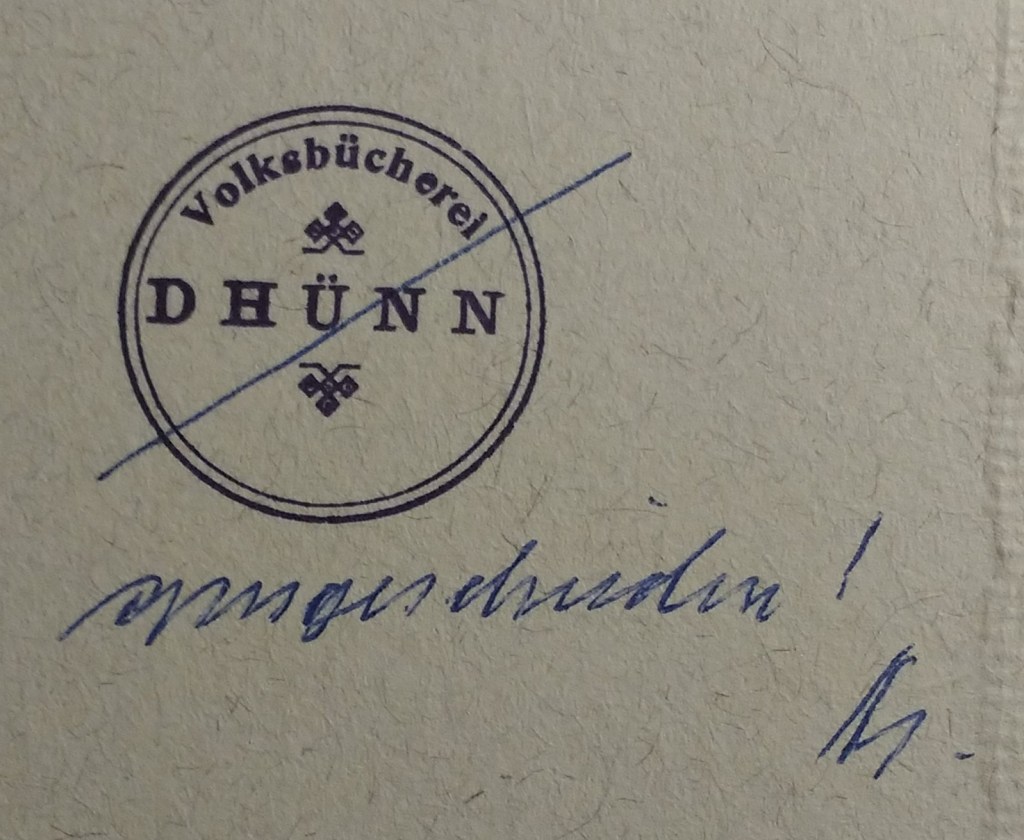 Volksbücherei
DHÜNN
ausgeschieden!